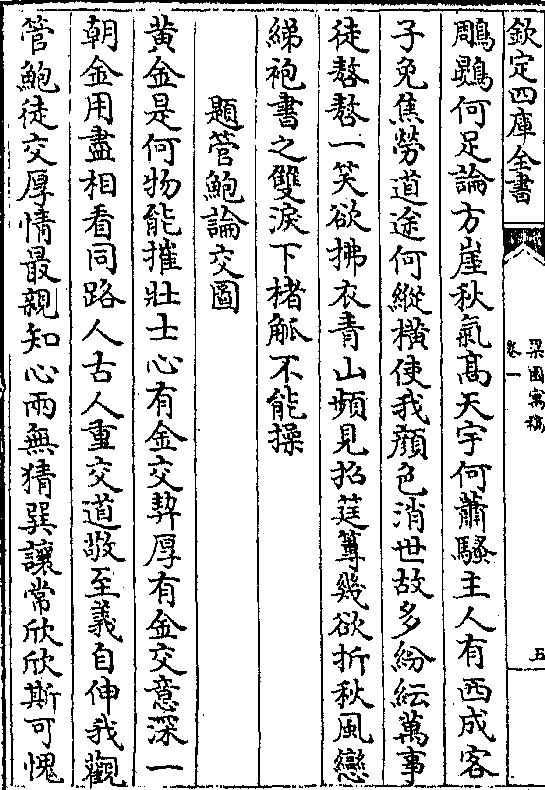 欽定四庫全書
梁園寓稿
卷一
五
鵰鶚何足論方崖秋氣髙天宇何蕭騷主人有西成客
子免焦勞道途何縱横使我顔色消世故多紛紜萬事
徒嗸嗸一笑欲拂衣青山頻見招莛篿幾欲折秋風戀
綈袍書之雙淚下楮觚不能操
題管鮑論交圖
黄金是何物能摧壯士心有金交契厚有金交意深一
朝金用盡相看同路人古人重交道敬至義自伸我觀
管鮑徒交厚情最親知心兩無猜巽讓常欣欣斯可愧